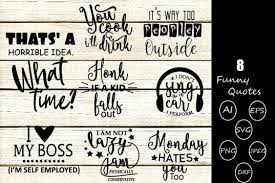 THATS' A
HORRIBLE IDEA.
You
Cook
i'll drink
IT'S WAY TOO
PEOPLEY
Outside
What
time?
Honk
IF A KID
falls
out
I DON'T
SING
IN THE
car
I PERFORM
I
MY BOSS
(I'M SELF EMPLOYED)
I AM NOT
Lazy
I am
PHYSICALLY
CONSERVATIVE
Monday
HATES you
Too
8
Funny
Quotes
AI
EPS
SVG
PNG
JPEG
DXF